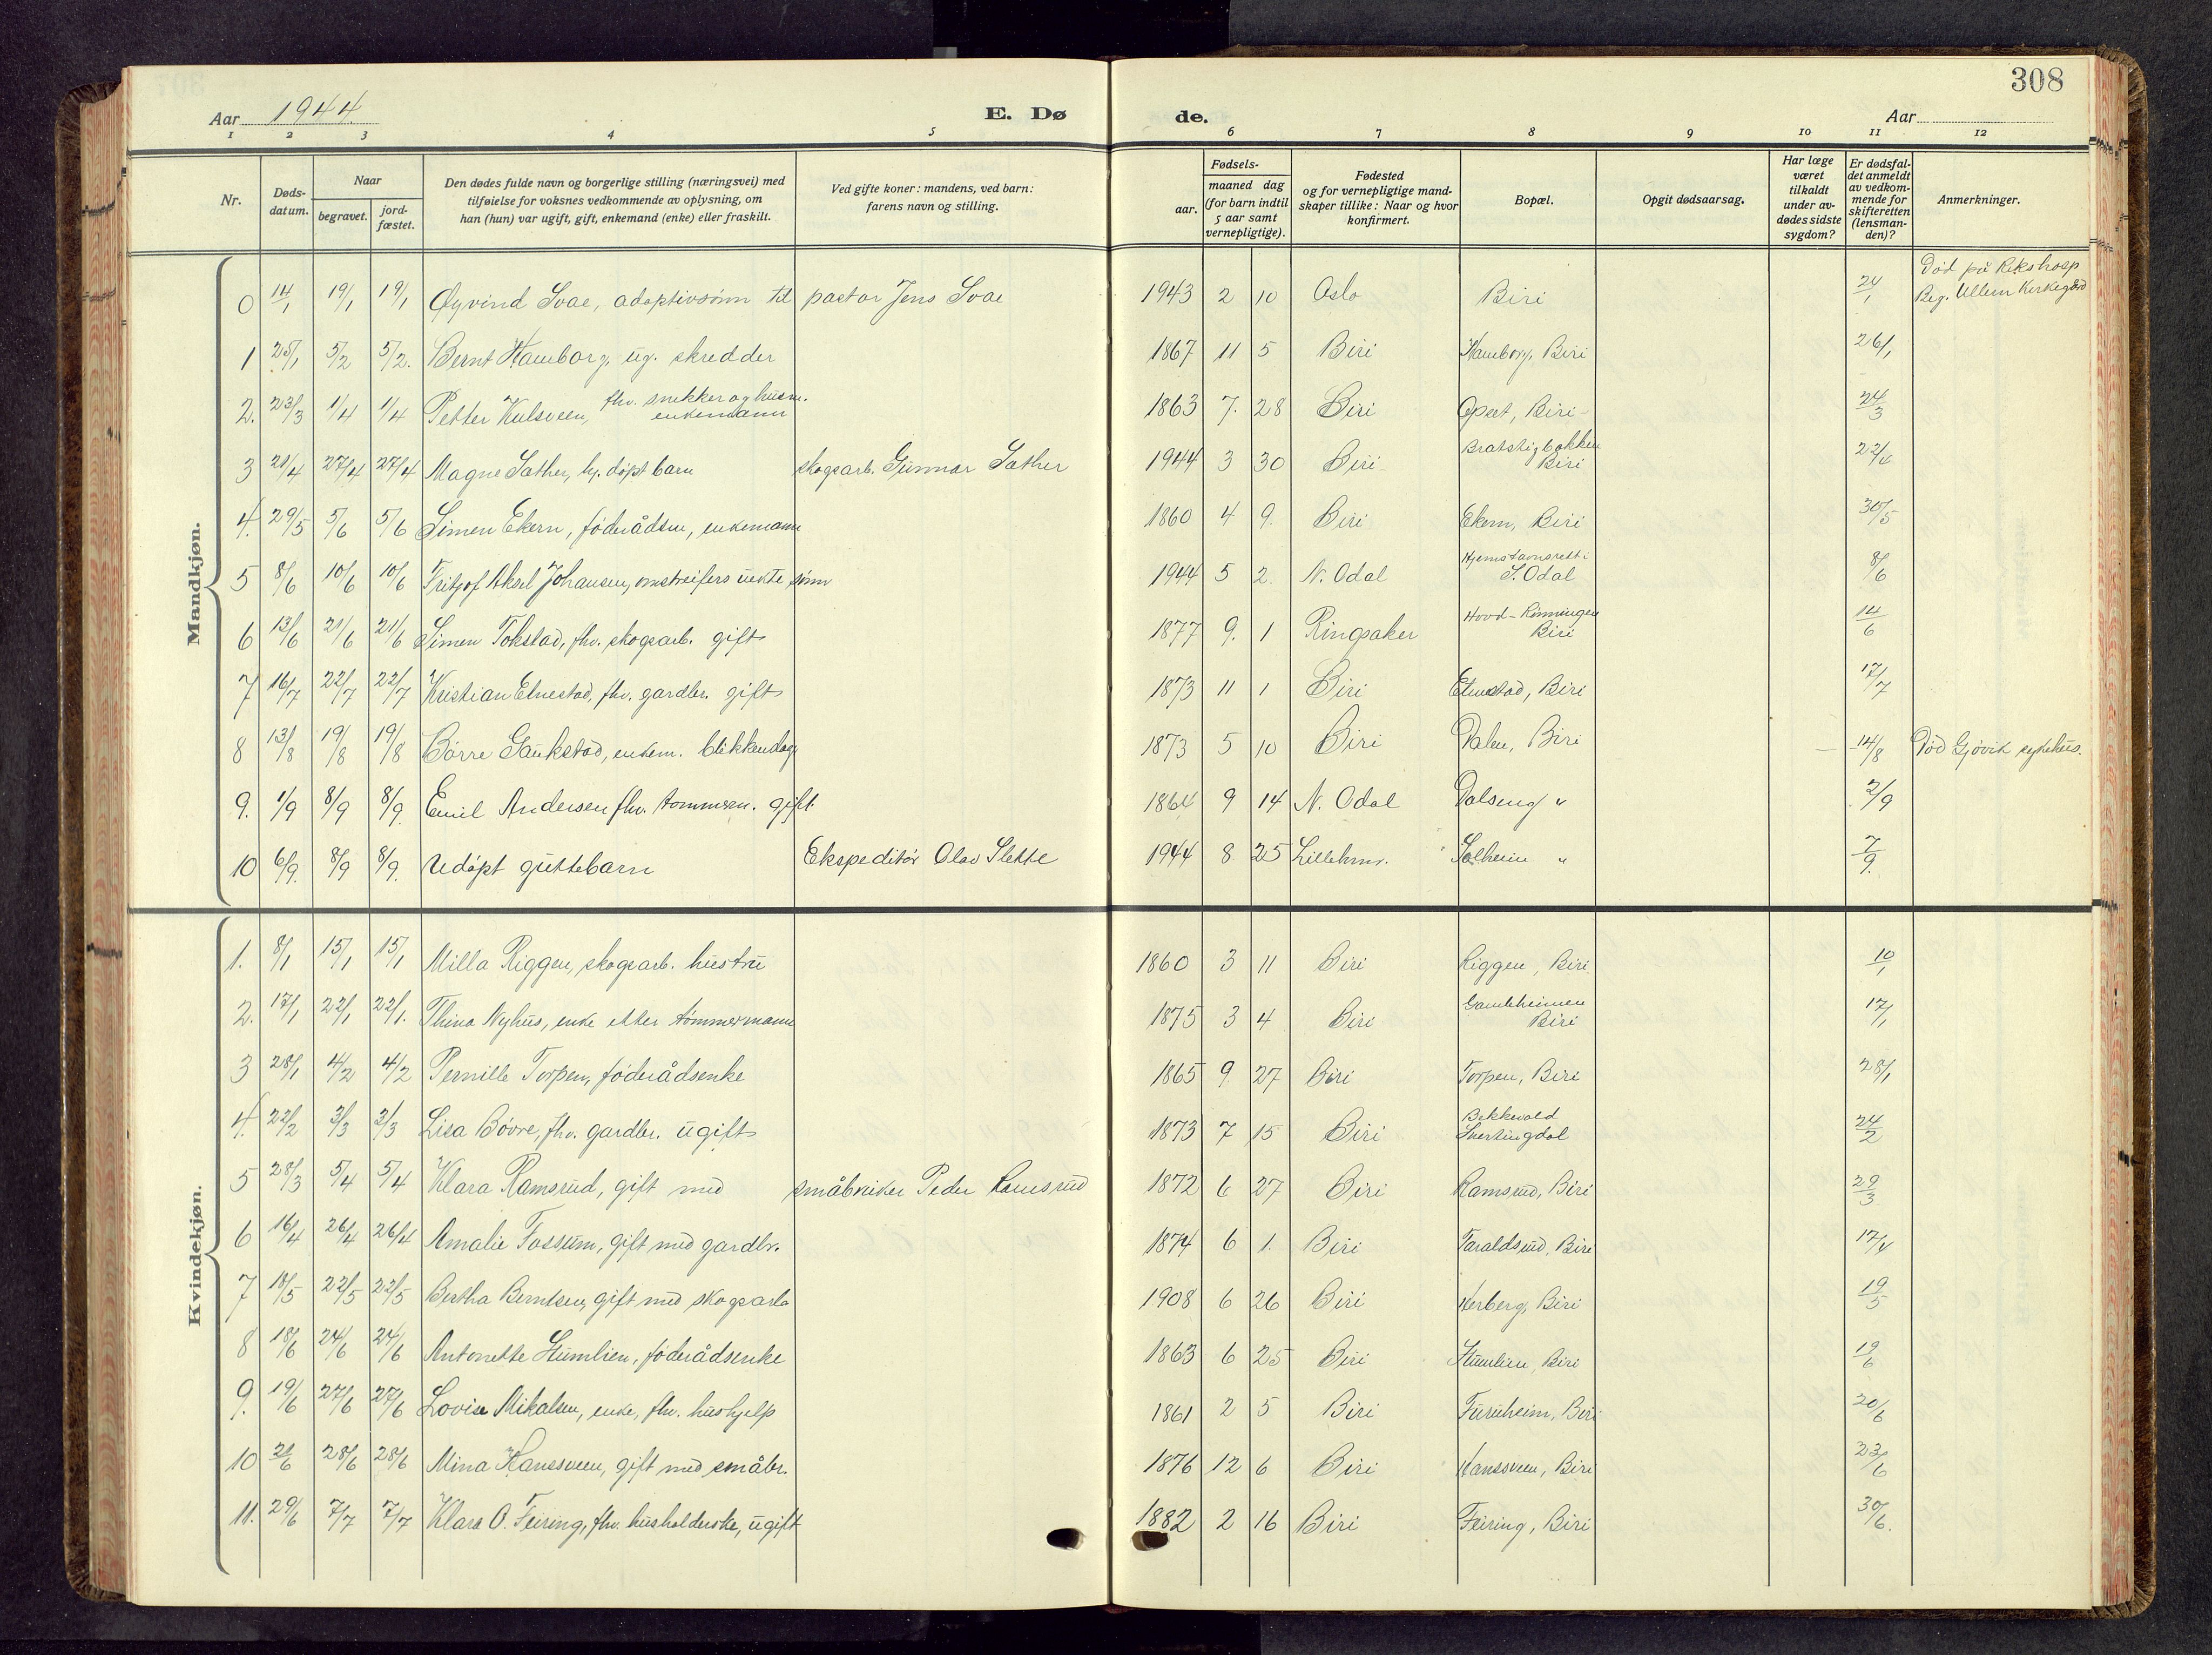 308
Aar 1944 E. Dø de. Aar
1 2 3 4 5 6 7 8 9 10 11 12
Nr. Døds-datum. Naar begravet. jord-fæstet. Den dødes fulde navn og borgerlige stilling (næringsvei) med tilføielse for voksnes vedkommende av oplysning, om han (hun) var ugift, gift, enkemand (enke) eller fraskilt. Ved gifte koner: mandens, ved barn: farens navn og stilling. aar. Fødsels- maaned dag (for barn indtil 5 aar samt vernepligtige). Fødested og for vernepligtige mandskaper tillike: Naar og hvor konfirmert. Bopæl. Opgit dødsaarsag. Har læge været tilkaldt under avdødes sidste sygdom? Er dødsfaldet anmeldt av vedkommende for skifteretten (lensmanden)? Anmerkninger.
Mandkjøn.
0 14/1 19/1 19/1 Øyvind Svae, adoptivsønn til pastor Jens Svae 1943 2 10 Oslo Biri 24/1 Død på Rikshosp Beg. Ullern Kirkegård
1 25/1 5/2 5/2. Bernt Hamborg, ug. skredder 1867 11 5 Biri Hamborg, Biri 26/1
2. 23/3 1/4 1/4 Petter Kulsveen, fhv. snekker og husm. enkemann 1863 7. 28 Biri Opset, Biri 24/3
3 21/4 27/4 27/4 Magne Sather, hj. døpt barn skogsarb. Gunnar Sather 1944 3 30 Biri Bratstigbakken Biri 22/4
4. 29/5 5/6 5/6 Simen Ekern, føderådsm, enkemann 1860 4 9. Biri Ekern, Biri 30/5
5 8/6 10/6 10/6 Fritjof Aksel Johansen, omstreifers uekte sønn 1944 5 2. N. Odal Hjemstavnsrett i S. Odal 8/6
6 13/6 21/6 21/6 Simen Tokstad, fhv. skogsarb. gift 1877 9. 1 Ringsaker Hovd-Rønningen Biri 14/6
7 16/7 22/7 22/7 Kristian Elnestad, fhv. gardbr. gift 1873 11 1 Biri Elnestad, Biri 17/7
8 13/8 19/8 19/8 Børre Gaukstad, enkem. blikkenslag 1873 5 10 Biri Dalen, Biri 14/8 Død Gjøvik sykehus.
9. 1/9 8/9 8/9. Emil Andersen fhv. tømmerm. gift. 1864 9 14 N. Odal Dalseng " 2/9
10 6/9. 8/9 8/9. Udøpt guttebarn Ekspeditør Olav Slette 1944 8 25 Lillehmr. Solheim " 7/9.
Kvindekjøn.
1. 8/1 15/1 15/1 Milla Riggen, skogsarb. hustru 1860 3 11 Biri Riggen, Biri 10/1
2. 17/1 22/1 22/1. Thina Nyhus, enke etter tømmermann 1875 3 4 Biri Gamleheimen Biri 17/1
3 28/1 4/2 4/2 Pernille Torpen, føderådsenke 1865 9 27 Biri Torpen, Biri 28/1
4. 22/2 3/3 3/3 Lisa Bøvre, fhv. gardbr. ugift 1873 7 15 Biri Bekkevold Snertingdal 24/2
5 28/3 5/4 5/4 Klara Ramsrud, gift med småbruker Peder Ramsrud 1872 6 27 Biri Ramsrud, Biri 29/3
6 16/4 26/4 26/4 Amalie Fossum, gift med gardbr. 1874 6 1. Biri Taraldsrud, Biri 17/4
7 18/5 22/5 22/5 Bertha Berntsen, gift med skogsarb 1908 6 26 Biri Kerberg, Biri 19/5
8 18/6 24/6 24/6 Antonette Humlien, føderådsenke 1863 6 25 Biri Humlien, Biri 19/6
9. 19/6 27/6 27/6 Lovise Mikalsen, enke, fhv. hushjelp 1861 2 5 Biri Furuheim, Biri 20/6
10 21/6 28/6 28/6 Mina Hansveen, gift med småbr. 1876 12 6 Biri Hansveen, Biri 23/6
11. 29/6 7/7 7/7 Klara O. Feiring, fhv. husholderske, ugift 1882 2 16 Biri Feiring, Biri 30/6.